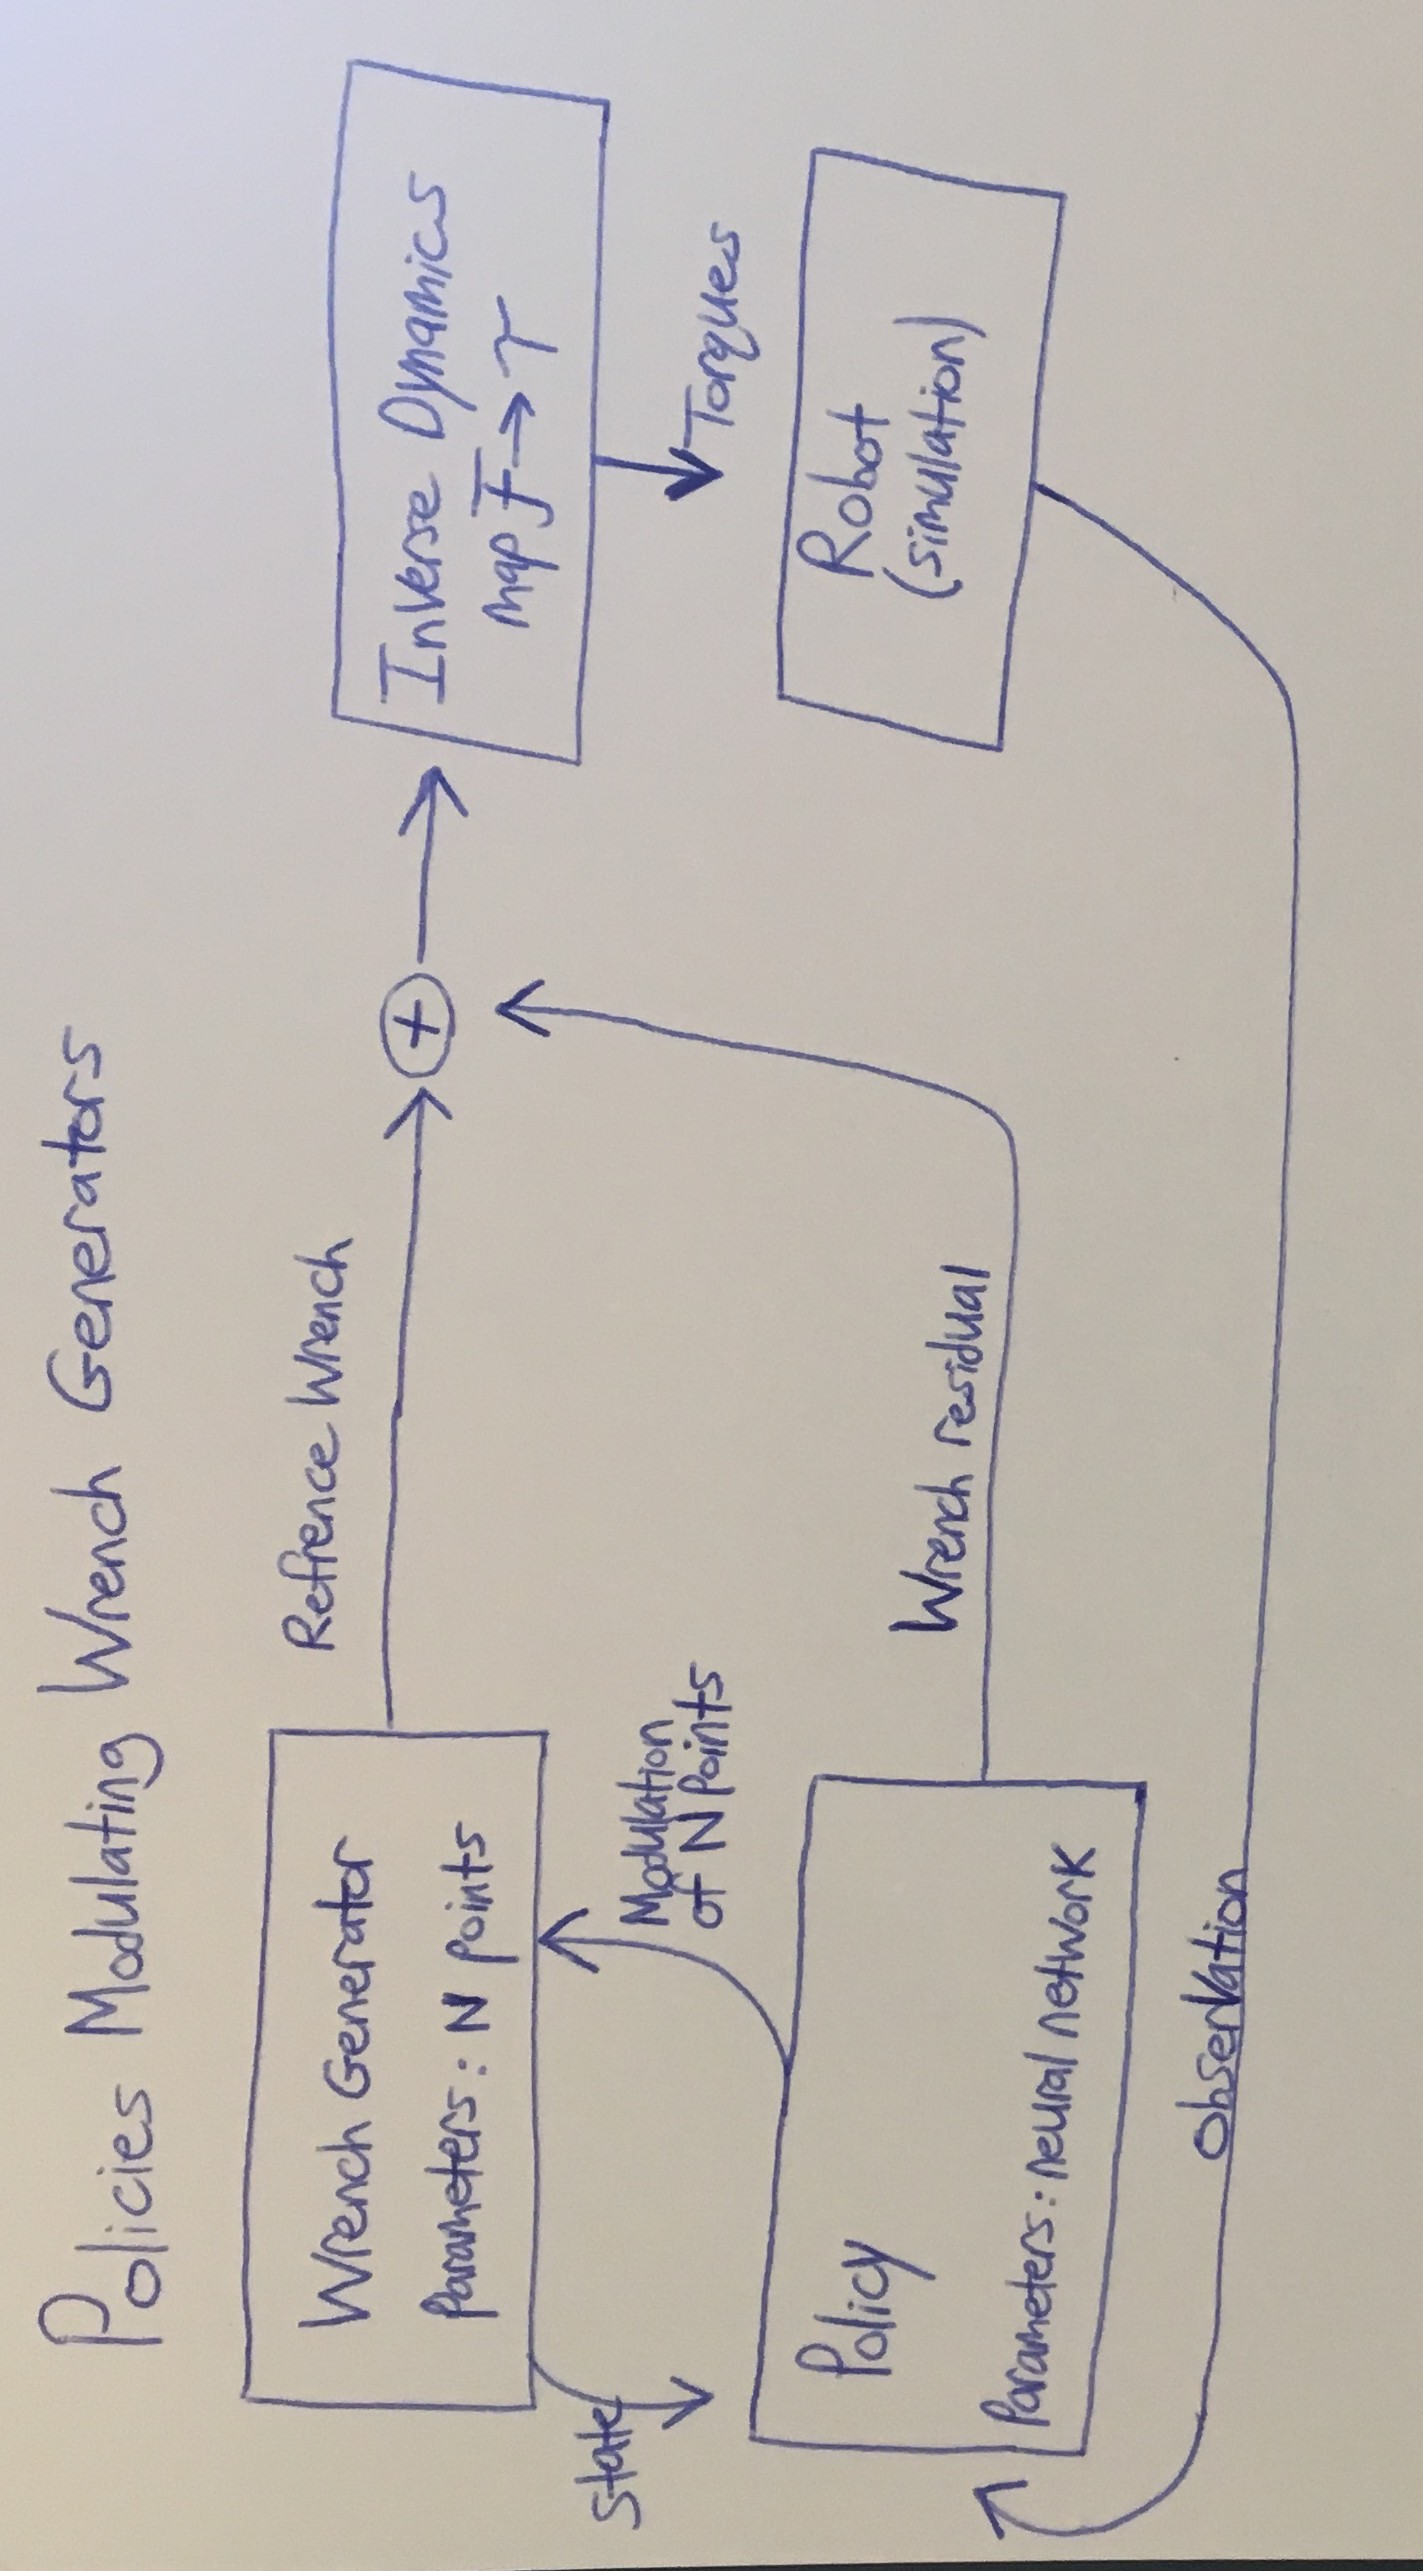 Policies Modulating Wrench Generators
Wrench Generator
Parameters: N points
Refrence Wrench
+
Inverse Dynamics
Map F → τ
State
Modulation
of N Points
Torques
Policy
Parameters: neural network
Wrench residual
Robot
(simulation)
Observation